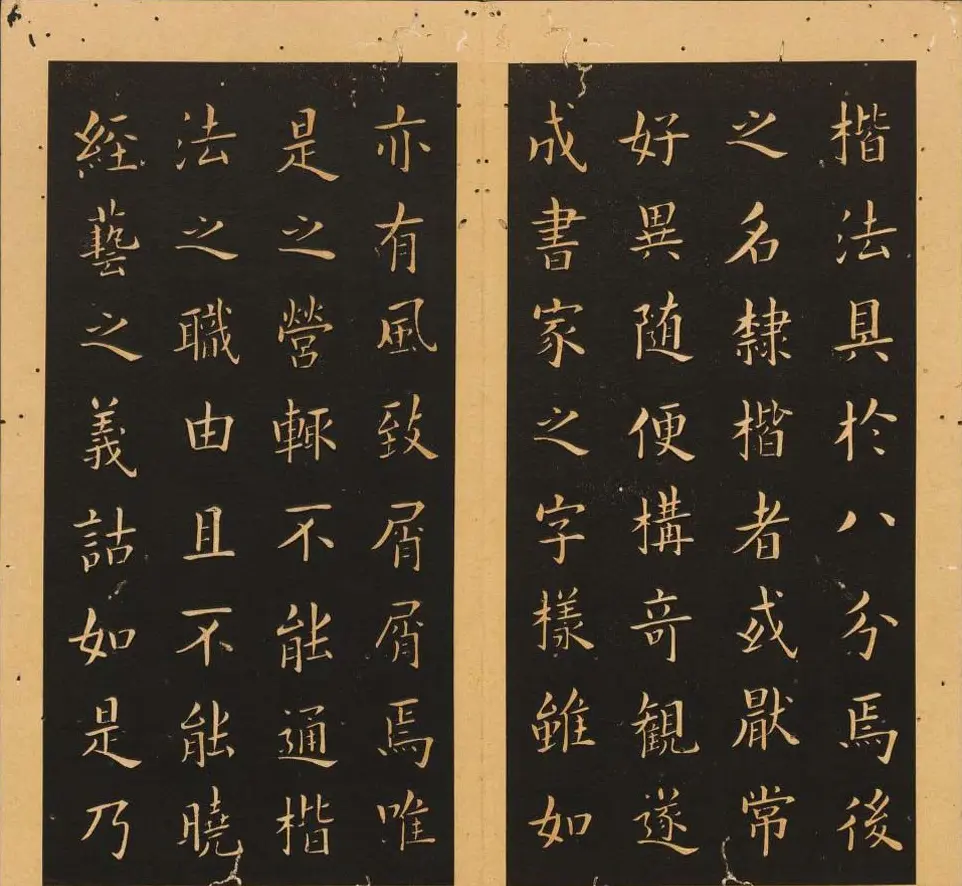 楷法具於八分焉後
之名隸楷者或厭常
好異随便構奇観遂
成書家之字様雖如
亦有風致屑屑焉唯
是之營輙不能通楷
法之職由且不能曉
經藝之義詁如是乃